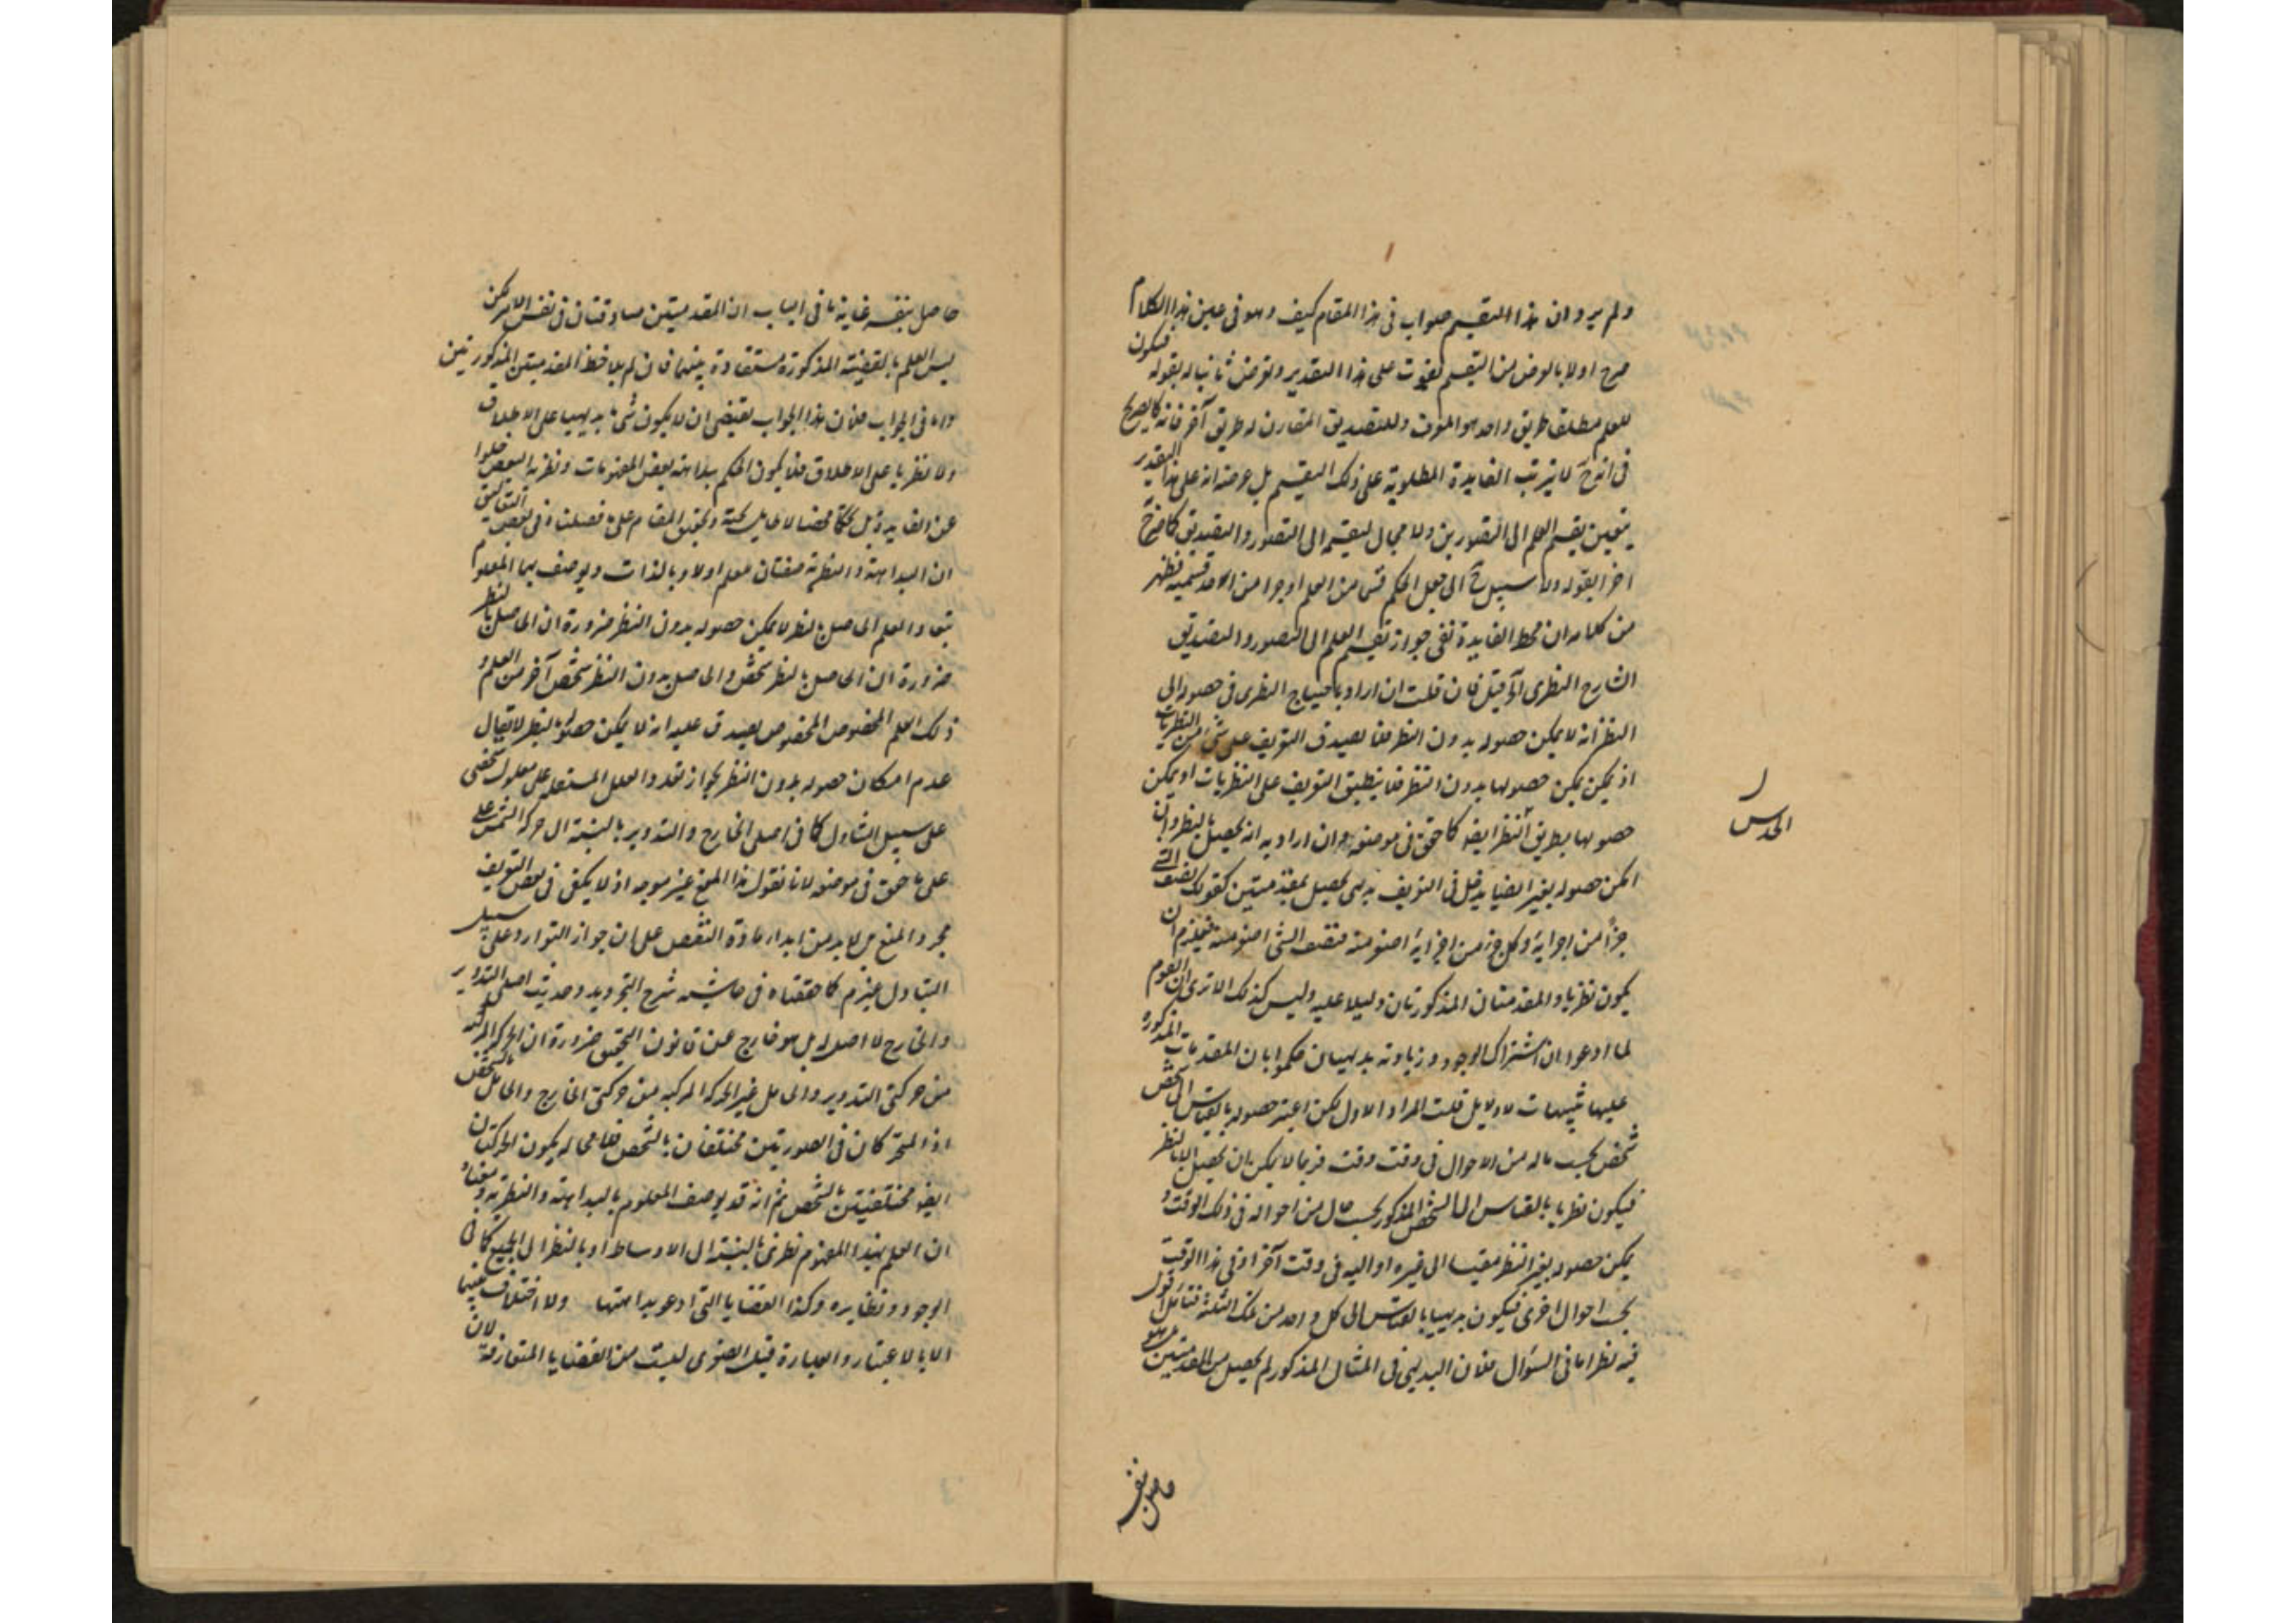 ولم يرد ان هذا التقسيم صواب فى هذا المقام كيف وهو فى عين هذا الكلام
صرح اولا بالغرض من التقسيم يفوت على هذا التقدير وتعرض ثانيا له بقوله فيكون
للعلم مطلقا طريق واحد هو المعرف وللتصديق المقارن له طريق آخر فانه كما يصرح
فى انه ح لا يترتب الفايدة المطلوبة على ذلك التقسيم بل غرضه انه على هذا التقدير
يتعين تقسيم العلم الى التصورين ولا مجال لتقسيمه الى التصور والتصديق كما صرح
اخرا بقوله ولا سبيل ح الى جعل الحكم قسما من العلم او جزا من احد قسميه فظهر
من كلامه ان محط الفايدة نفى جواز تقسيم العلم الى التصور والتصديق
الشارح النظرى آه قيل فان قلت ان اراد باحتياج النظرى فى حصوله الى
النظر انه لا يمكن حصوله بدون النظر فلا يصدق التعريف على شئ من النظريات
اذ يمكن حصولها بدون النظر فلا ينطبق التعريف على النظريات او يمكن
حصولها بطريق النظر ايضا كما حقق فى موضعه وان اراد به انه يحصل بالنظر وان
امكن حصوله بغير ايضا يدخل فى التعريف بديهى يحصل بمقدمتين كقولك نصف الشئ
جزأ من اجزايه وكل جزء من اجزايه اصغر منه فنصف الشئ اصغر منه فيلزم ان
يكون نظريا والمقدمتان المذكورتان دليلا عليه وليس كذلك الا ترى ان القوم
لما ادعوا ان اشتراك الوجود وزيادته بديهيان حكموا بان المقدمات المذكورة
عليها تنبيهات لا دلايل قلت المراد الاول لكن اعتبر حصوله بالقياس الى شخص
شخص بحسب ماله من الاحوال فى وقت وقت فربما لا يمكن ان يحصل الا بالنظر
فيكون نظريا بالقياس الى الشخص المذكور بحسب حال من احواله فى ذلك الوقت و
يمكن حصوله بغير النظر مقيسا الى غيره او اليه فى وقت آخر او فى هذا الوقت
بحسب احوال اخرى فيكون بديهيا بالقياس الى كل واحد من تلك الثلثة فتامل اقول
فيه نظر اما فى السؤال فلان البديهى فى المثال المذكور لم يحصل من المقدمتين بل هو
الحدس
حاصل بنفسه
حاصل بنفسه غاية ما فى الباب ان المقدمتين صادقتان فى نفس الامر لكن
ليس العلم بالقضية المذكورة مستفادة منهما فان لم يلاحظ المقدمتين المذكورتين
واما فى الجواب فلان هذا الجواب يقتضى ان لا يكون شئ ما بديهيا على الاطلاق
ولا نظريا على الاطلاق فلا يكون الحكم ببداهته بعض المفهومات ونظرية البعض خلوا
عن الفايدة بل تحكما محضا لا طايل تحته وتحقيق المقام على ما فصلناه فى بعض التعاليق
ان البداهة والنظرية صفتان للعلم اولا وبالذات ويوصف بهما المعلوم
تبعا والعلم الحاصل بالنظر لا يمكن حصوله بدون النظر ضرورة ان الحاصل بالنظر
ضرورة ان الحاصل بالنظر شخص والحاصل بدون النظر شخص آخر من العلم و
ذلك العلم المخصوص المخصوص يصدق عليه انه لا يمكن حصوله بالنظر لا يقال
عدم امكان حصوله بدون النظر لجواز تعدد العلل المستقلة على معلول شخصى
على سبيل التبادل كما فى اصلى الخارج والتدوير بالنسبة الى حركة الشمس على
على ما حقق فى موضعه لانا نقول هذا المنع غير موجه اذ لا يكفى فى نقض التعريف
مجرد المنع بل لا بد من ابداء مادة النقض على ان جواز التوارد على سبيل
التبادل غير تام كما حققناه فى حاشية شرح التجريد وحديث اصلى التدوير
والخارج لا اصل له بل هو خارج عن قانون التحقيق ضرورة ان الحركة المركبة
من حركتى التدوير والحامل غير الحركة المركبة من حركتى الخارج والحامل بالشخص
اذ المتحركان فى الصورتين مختلفان بالشخص فلا محالة يكون الحركتان
ايضا مختلفتين بالشخص ثم انه قد يوصف المعلوم بالبداهة والنظرية ومعناه
ان العلم بهذا المفهوم نظرى بالنسبة الى الاوساط او بالنظر الى الجميع كما فى
الوجود ونظايره وكذا القضايا التى ادعو بداهتها ولا اختلاف بينها
الا بالاعتبار والعبارة قيل الصغرى ليست من القضايا المتعارفة لان